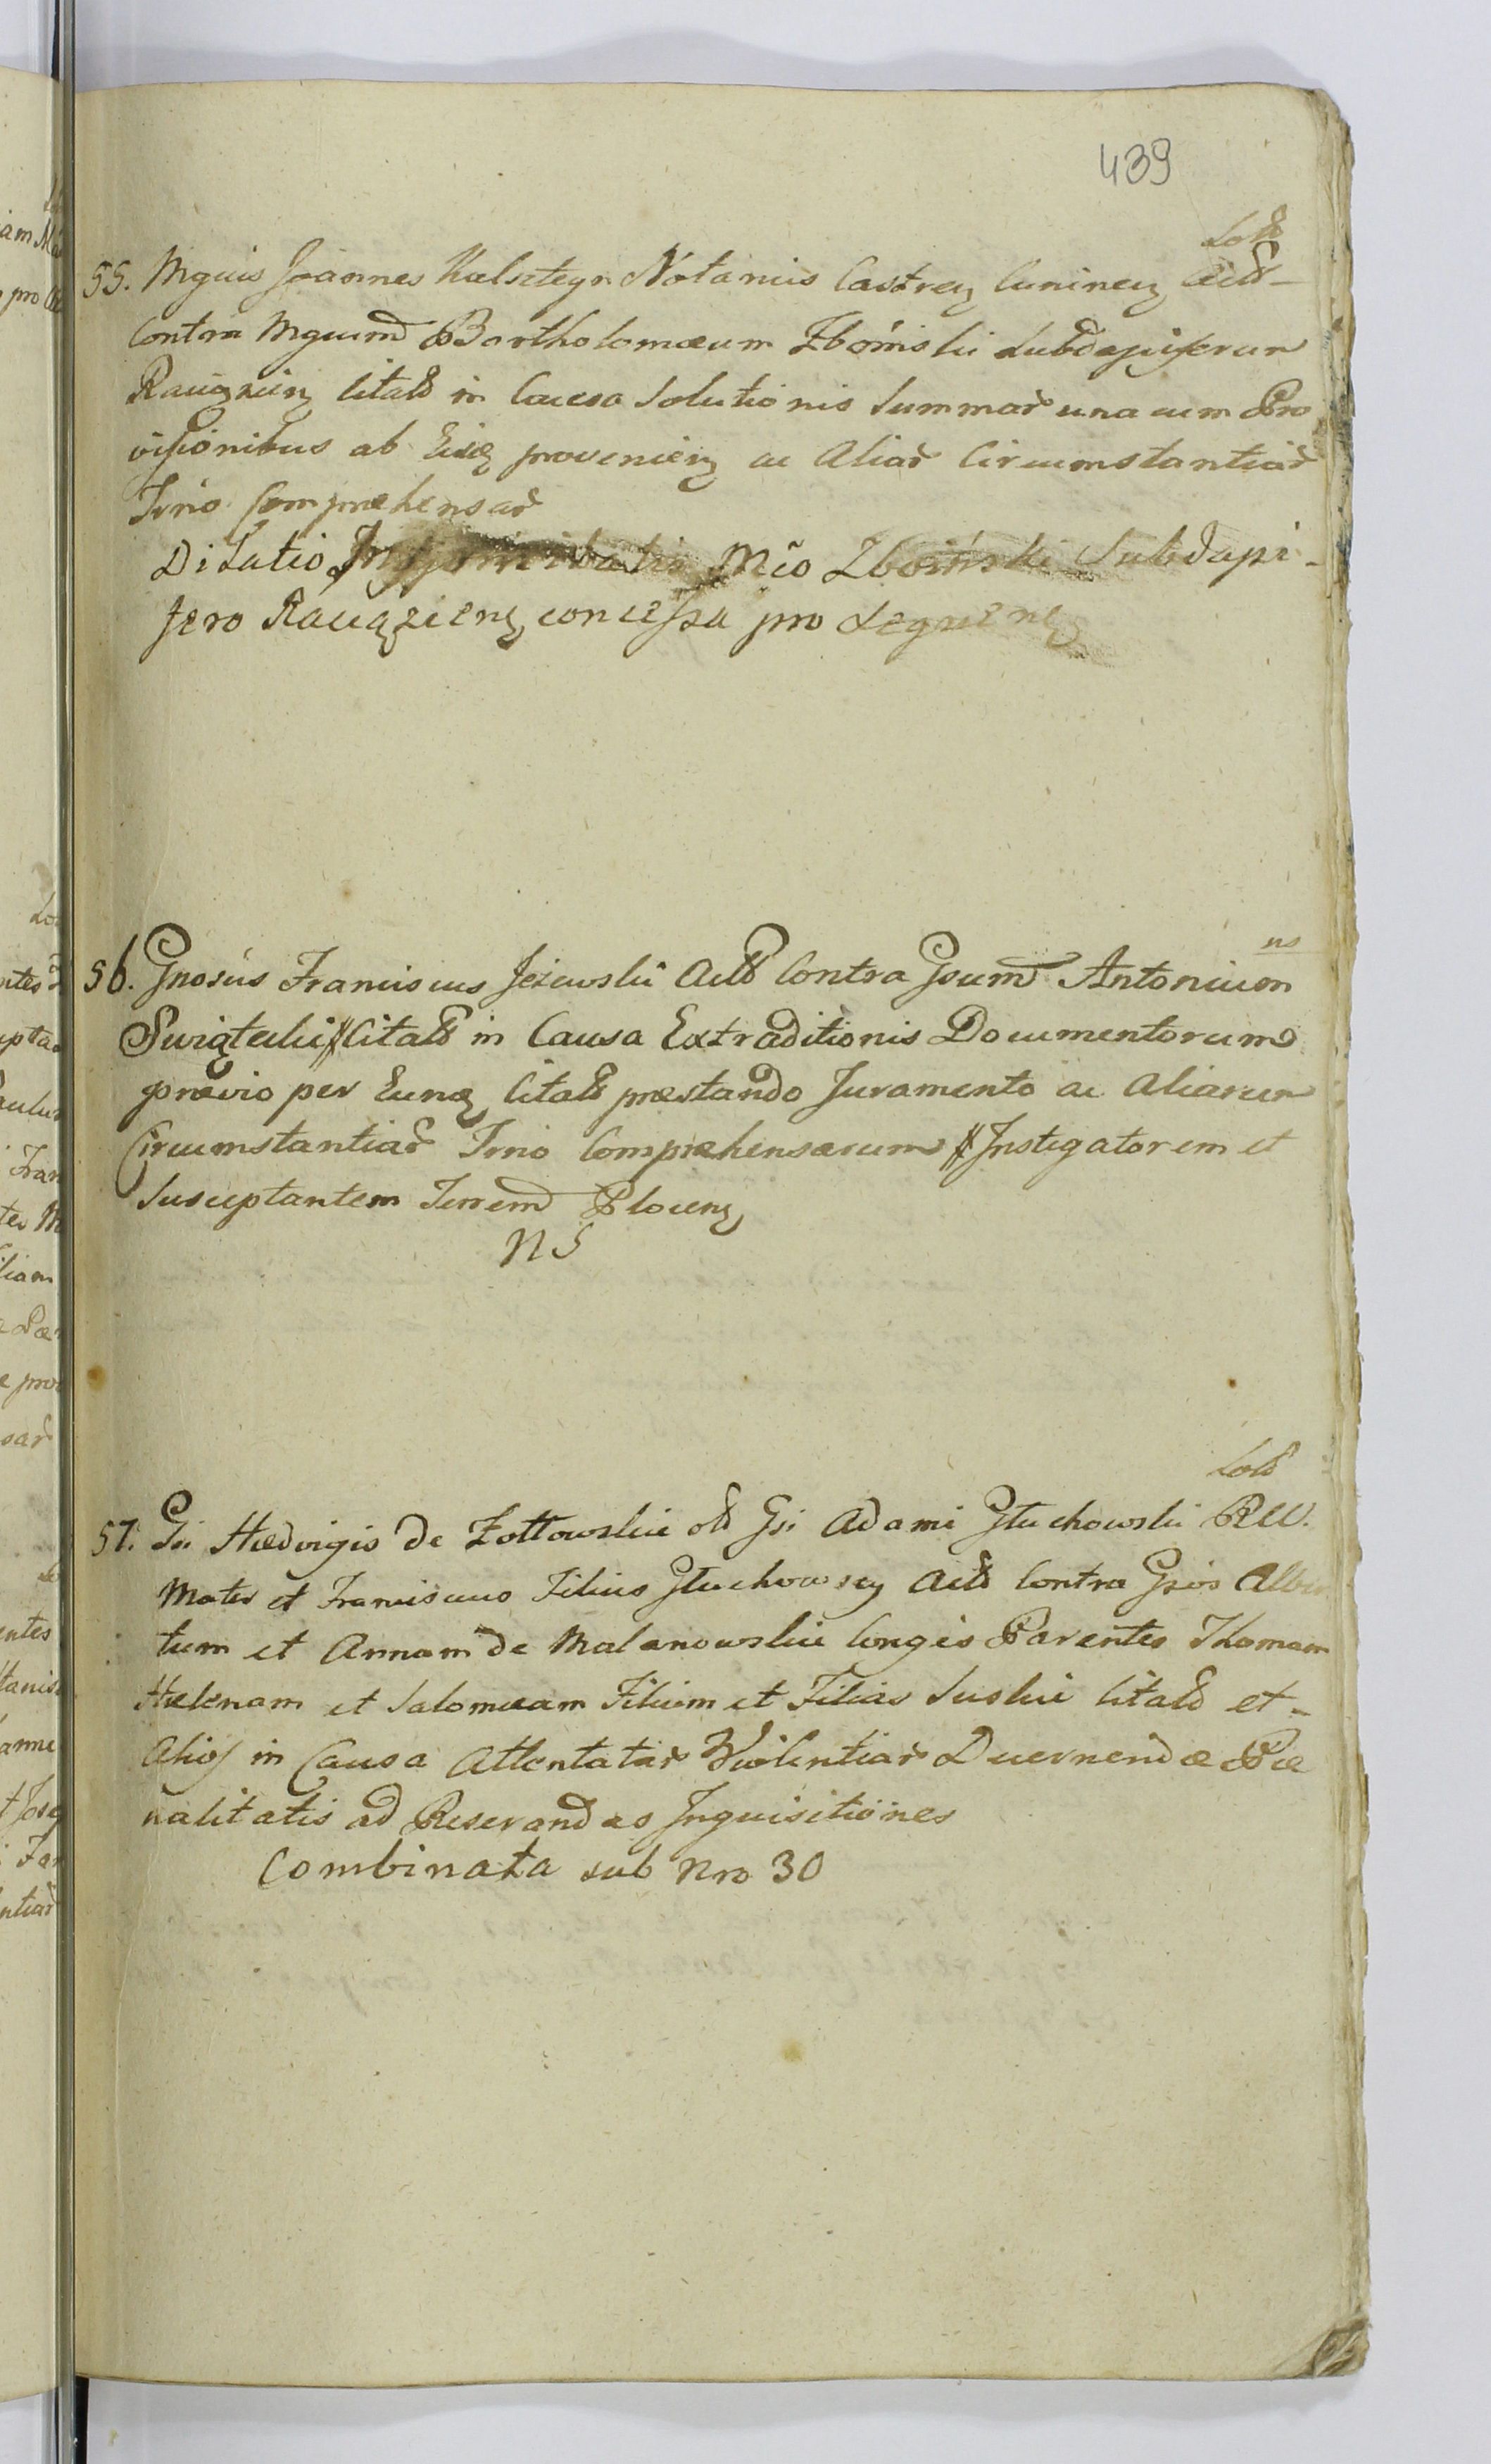 439
Lok
55. Mgnis Joannes Kalszteyn Notarius Castreń Cuninen Actts
Contra Mgnumd Bartholomæum Zboinski Subdapiferum
Raciązień Citatt in Causa Solutionis Summar una cum Pro
visionibus ab Eisdę provenień ac Aliar Circumstantiar
Trno Comprehensar
Dilatio Mco Zboinski Subdapi-
fero Raciązień concessa pro
ns
56. Gnosus Franciscus Jezewski Actt Contra Gsum Antonium
Swiątecki # Citatt in Causa Extraditionis Documentorum
prævio per Eundę Citatt præstando Juramento ac Aliarum
Circumstantiar Trno Comprehensarum # Instigatorem et
Susceptantem Terrem Plocens
NS
Lok
57. Gsi Hedvigis de Zołtowskie olt Gsi Adami Głuchowski Rel.
Mater et Franciscus Filius Głuchowscy Actt Contra Gsos Alber
tum et Annam de Malanowskie Conges Parentes Thomam
Helenam et Salomeam Filium et Filias Suskie Citatt et
Alios in Causa Attentatar Violentiar Decernendæ Pæ
nalitatis ad Reserandas Inquisitiones
Combinata sub Nro 30